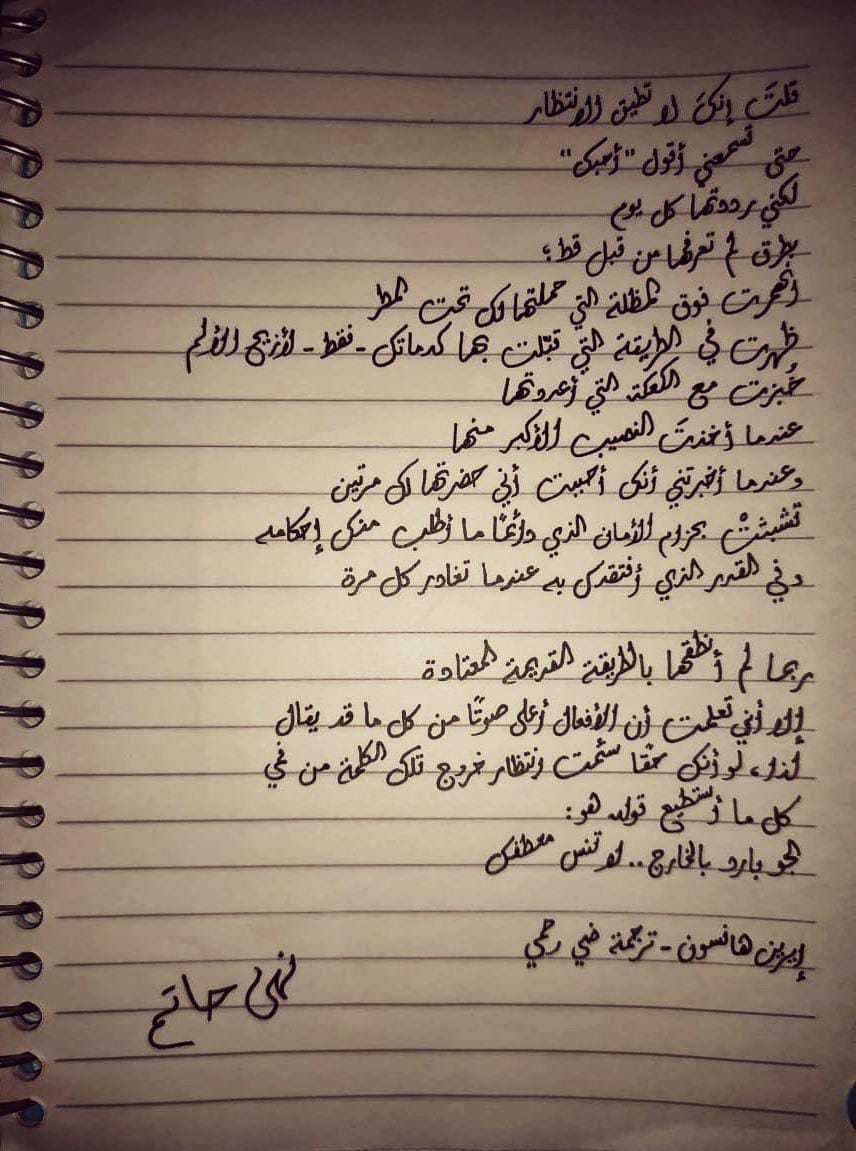 قلتَ إنكَ لا تطيق الانتظار
حتى تسمعني أقول "أحبك"
لكني رددتها كل يوم
بطرق لم تعرفها من قبل قط؛
انهمرت فوق المظلة التي حملتها لك تحت المطر
ظهرت في الطريقة التي قبّلت بها كدماتك - فقط - لأزيح الألم
خُبزت مع الكعكة التي أعددتها
عندما أخذتَ النصيب الأكبر منها
وعندما أخبرتني أنك أحببت أني حضرتها لك مرتين
تشبثتْ بحزام الأمان الذي دائمًا ما أطلب منك إحكامه
وفي القدر الذي أفتقدك به عندما تغادر كل مرة
ربما لم أنطقها بالطريقة القديمة المعتادة
إلا أني تعلمت أن الأفعال أعلى صوتًا من كل ما قد يقال
لذا، لو أنك حقًا سئمت انتظار خروج تلك الكلمة من فمي
كل ما أستطيع قوله هو:
الجو بارد بالخارج.. لا تنس معطفك
إيرين هانسون - ترجمة ضي رحمي
نهى حاتم